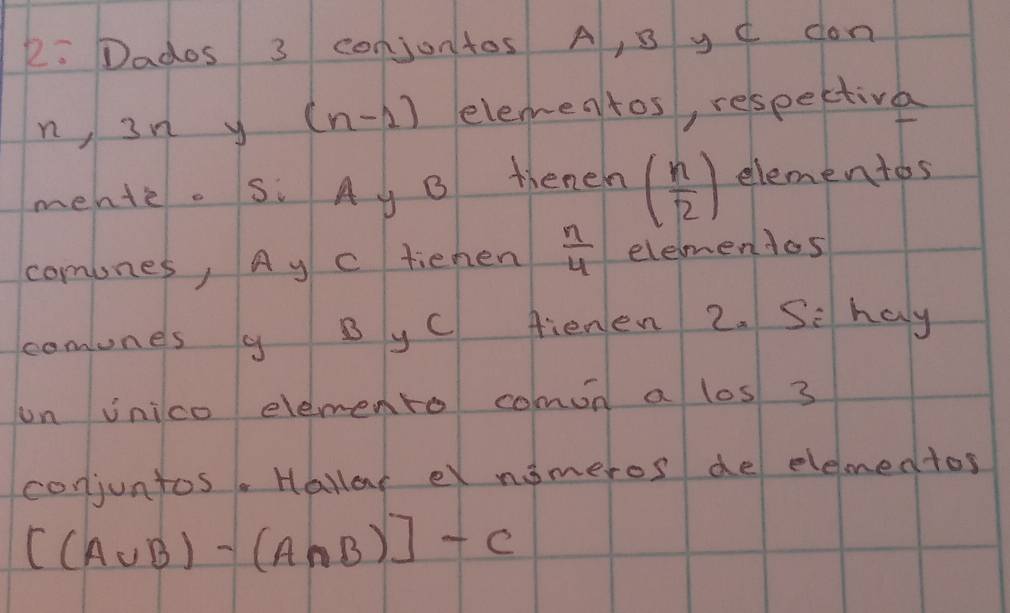 2: Dados 3 conjontos A, B y C con
n, 3n y (n-1) elementos, respektiva
mente. Si A y B tienen (n/2) elementos
comunes, A y C tienen n/4 elementos
comunes y B y C tienen 2. Si hay
un único elemento común a los 3
conjuntos. Hallar el números de elementos
[(A∪B) - (A∩B)] - C